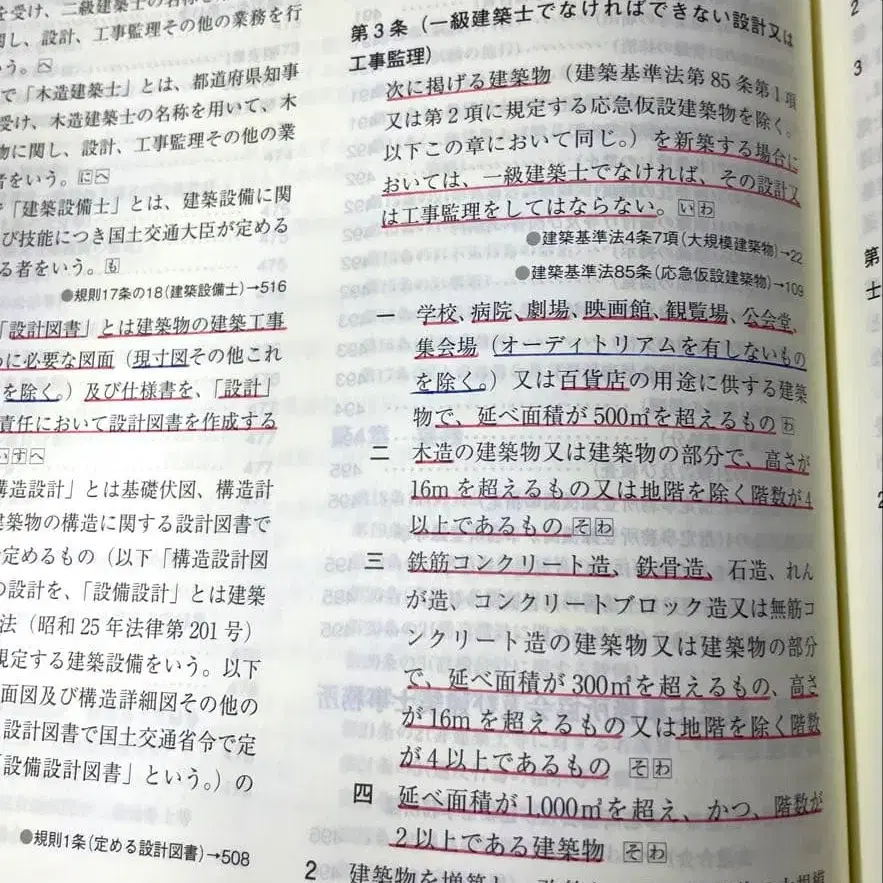 を受け、二級建築士の名称を
関し、設計、工事監理その他の業務を行
いう。ヘ
で「木造建築士」とは、都道府県知事
受け、木造建築士の名称を用いて、木
物に関し、設計、工事監理その他の業
者をいう。にヘ
「建築設備士」とは、建築設備に関
び技能につき国土交通大臣が定める
る者をいう。も
●規則17条の18(建築設備士)→516
「設計図書」とは建築物の建築工事
に必要な図面(現寸図その他これ
を除く。)及び仕様書を、「設計」
責任において設計図書を作成する
いすヘ
構造設計」とは基礎伏図、構造計
建築物の構造に関する設計図書で
定めるもの(以下「構造設計図
の設計を、「設備設計」とは建築
法(昭和25年法律第201号)
規定する建築設備をいう。以下
面図及び構造詳細図その他の
設計図書で国土交通省令で定
設備設計図書」という。)の
●規則1条(定める設計図書)→508
第3条(一級建築士でなければできない設計又は
工事監理)
次に掲げる建築物(建築基準法第85条第1項
又は第2項に規定する応急仮設建築物を除く。
以下この章において同じ。)を新築する場合に
おいては、一級建築士でなければ、その設計又
は工事監理をしてはならない。いわ
●建築基準法4条7項(大規模建築物)→22
●建築基準法85条(応急仮設建築物)→109
一 学校、病院、劇場、映画館、観覧場、公会堂、
集会場(オーディトリアムを有しないもの
を除く。)又は百貨店の用途に供する建築
物で、延べ面積が500㎡を超えるもの わ
二 木造の建築物又は建築物の部分で、高さが
16mを超えるもの又は地階を除く階数が4
以上であるもの そわ
三 鉄筋コンクリート造、鉄骨造、石造、れん
が造、コンクリートブロック造又は無筋コ
ンクリート造の建築物又は建築物の部分
で、延べ面積が300㎡を超えるもの、高さ
が16mを超えるもの又は地階を除く階数
が4以上であるもの そわ
四 延べ面積が1,000㎡を超え、かつ、階数が
2以上である建築物 そわ
2 建築物を増築し、
2
3
第
士